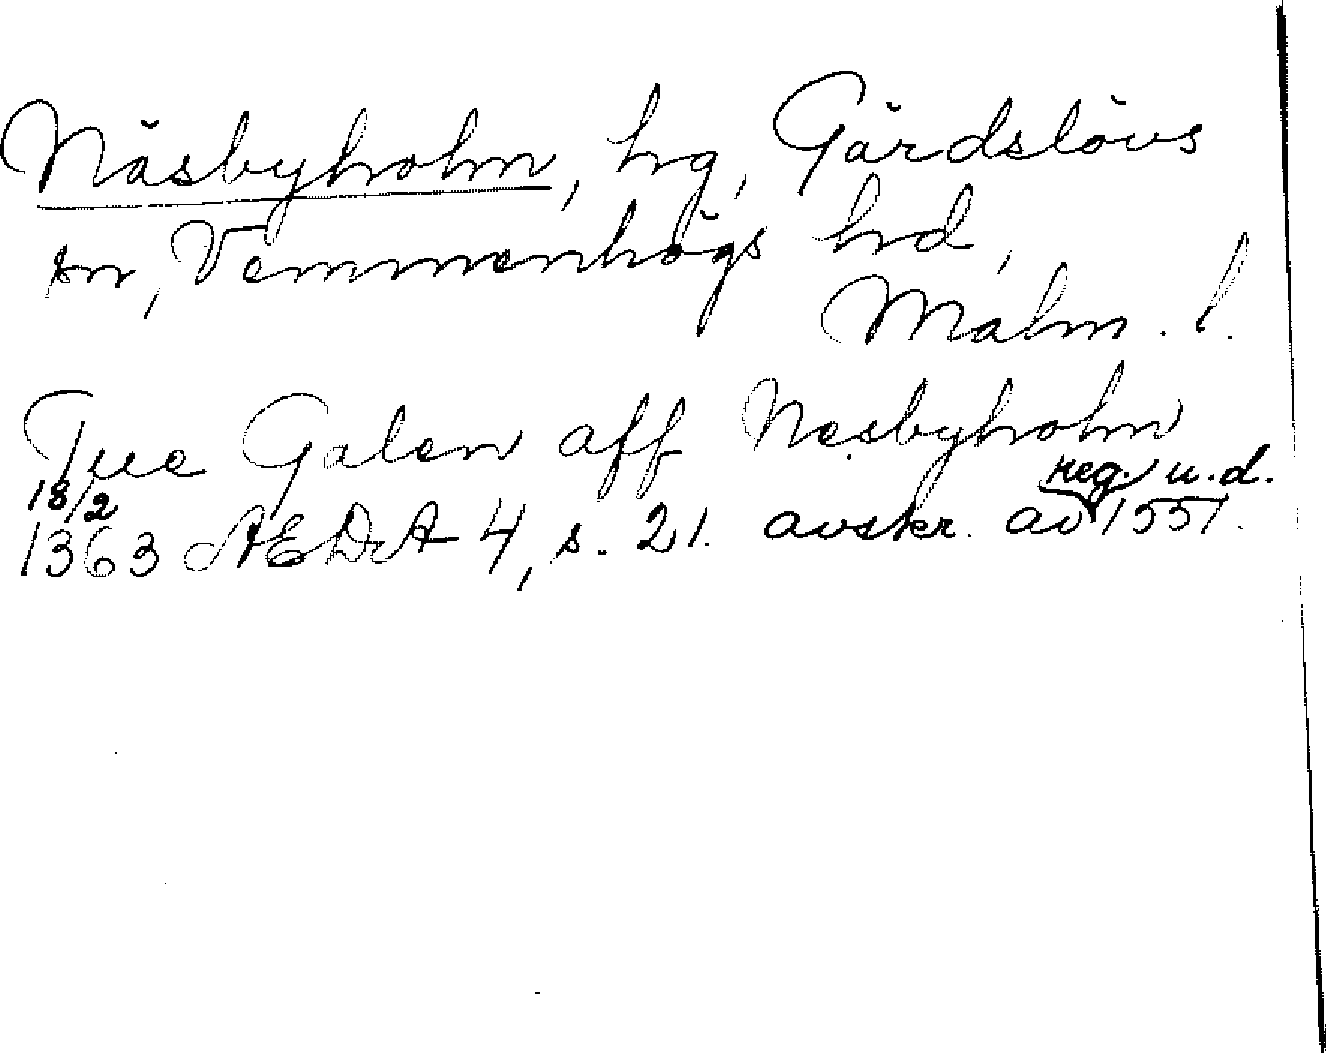 Näsbyholm, hg, Gärdslövs
sn, Vemmenhögs hd,
Malm. l.
Tue Galen aff Nesbyholm
18/2 reg. u.d.
1363 ÆDA 4, s. 21. avskr. av 1551.